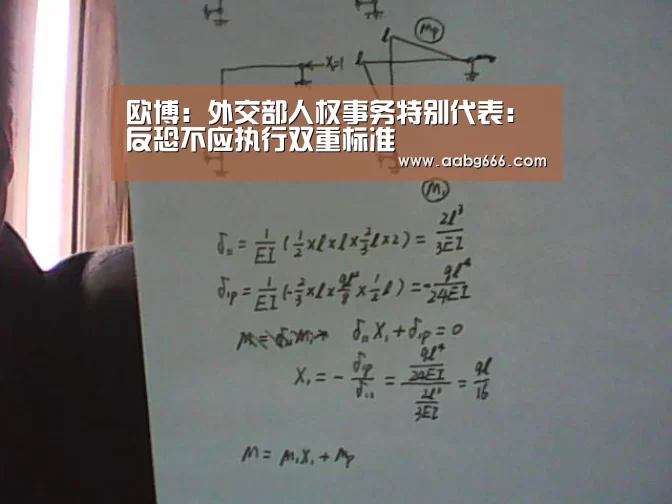 l
Mp
X₁=1
l
欧博：外交部人权事务特别代表：
反恐不应执行双重标准
www.aabg666.com
M₁
δ₁₁ = 1/EI (1/2 × l × l × 2/3 l × 2) = 2l³/3EI
δ₁p = 1/EI (-2/3 × l × ql²/8 × 1/2 l) = -ql⁴/24EI
δ₁₁ X₁ + δ₁p = 0
X₁ = - δ₁p/δ₁₁ = ql⁴/24EI / 2l³/3EI = ql/16
M = M₁X₁ + Mp